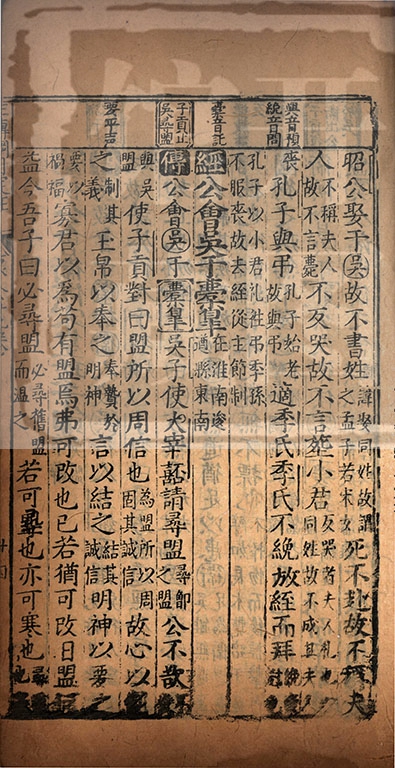 昭公娶于吳故不書姓諱娶同姓故謂之孟子若宋女死不赴故不稱夫
人不稱夫人故不言薨不反哭故不言葬小君反哭者夫人禮也以同姓故不成其夫人
與音預
絻音問
喪孔子與弔孔子始老故與弔適季氏季氏不絻放絰而拜絻
孔子以小君禮往弔季孫不服喪故去絰從主節制
橐音託
經公會吳于橐皐在淮南逡遒縣東南
子貢止吳尋盟
傳公會吳于橐皐吳子使大宰嚭請尋盟尋鄫之盟公不欲
與吳盟使子貢對曰盟所以周信也為盟所以周固其誠信故心以
要平声
之制其義玉帛以奉之奉贄於明神言以結之結其誠信明神以要之
要以禍福寡君以為苟有盟焉弗可改也已若猶可改日盟
益今吾子曰必尋盟必尋舊盟而溫之若可尋也亦可寒也尋